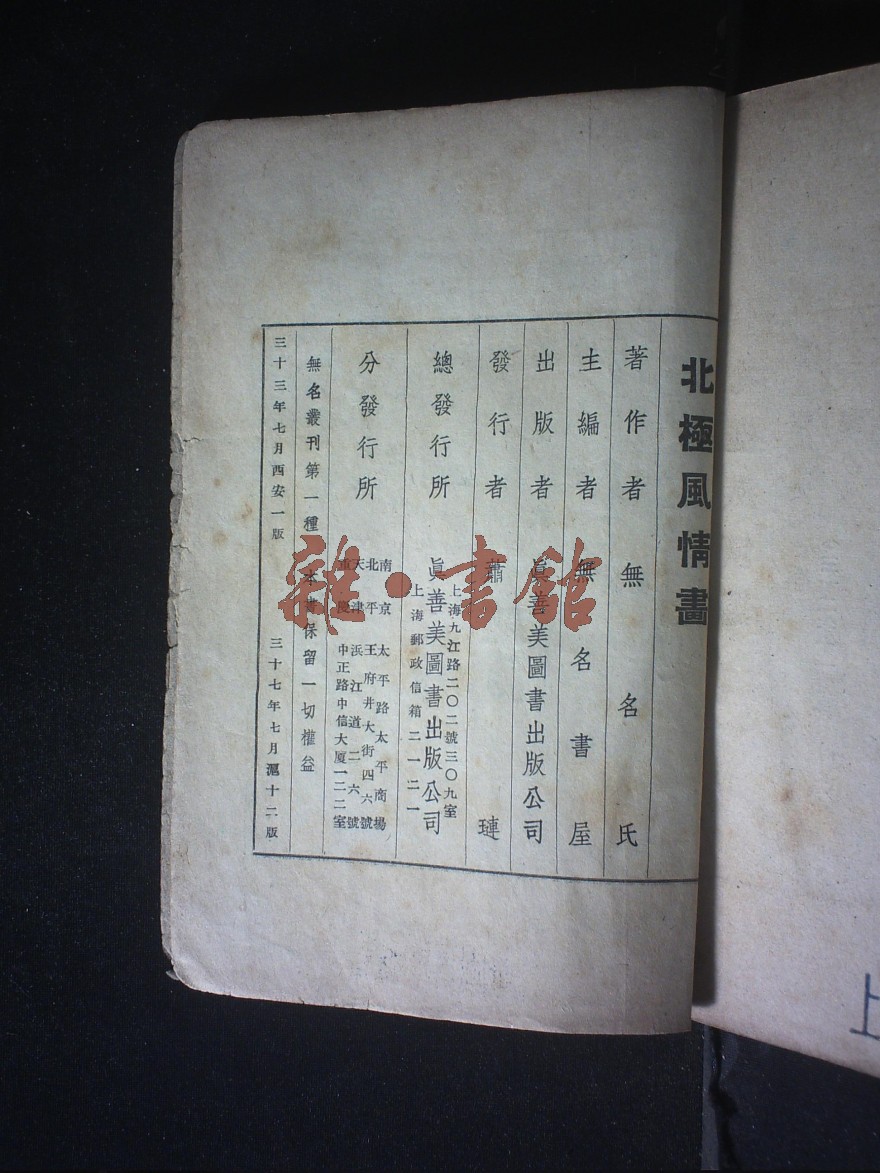 北極風情畫
著作者 無名氏
主編者 無名書屋
出版者 眞善美圖書出版公司
發行者 蕭璉
總發行所 眞善美圖書出版公司
上海九江路二〇二號三〇九室
上海郵政信箱二一二一
分發行所
南京 太平路太平商場
北平 王府井大街四六號
天津 浜江道二六號
重慶 中正路中信大厦一二二室
無名叢刊第一種 本書保留一切權益
三十三年七月西安一版 三十七年七月滬十二版
雜·書館
上